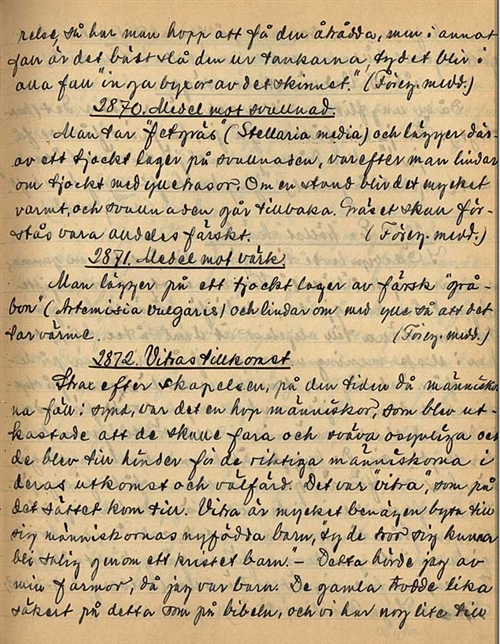 relse, så har man hopp att få den åtrådda, men i annat
fall är det bäst slå den ur tankarna, ty det blir i
alla fall "inga byxor av det skinnet." (Förey. medd.)
2870. Medel mot svullnad.
Man tar "fetgräs" (Stellaria media) och lägger där-
av ett tjockt lager på svullnaden, varefter man lindar
om tjockt med ylletrasor. Om en stund blir det mycket
varmt, och svullnaden går tillbaka. Gräset skall för-
stås vara alldeles färskt. (Förey. medd.)
2871. Medel mot värk.
Man lägger på ett tjockt lager av färsk "grå-
bon" (Artemisia vulgaris) och lindar om med ylle så att det
tar värme. (Förey. medd.)
2872. Vitras tillkomst.
Strax efter skapelsen, på den tiden då människor
na föll i synd, var det en hop människor, som blev ut-
kastade att de skulle fara och sväva osynliga och
de blev till hinder för de riktiga människorna i
deras utkomst och välfärd. Det var "vitra", som på
det sättet kom till. Vitra är mycket benägen byta till
sig människornas nyfödda barn, "ty de tror sig kunna
bli salig genom ett kristet barn." - Detta hörde jag av
min farmor, då jag var barn. De gamla trodde lika
säkert på detta som på bibeln, och vi har nog lite till